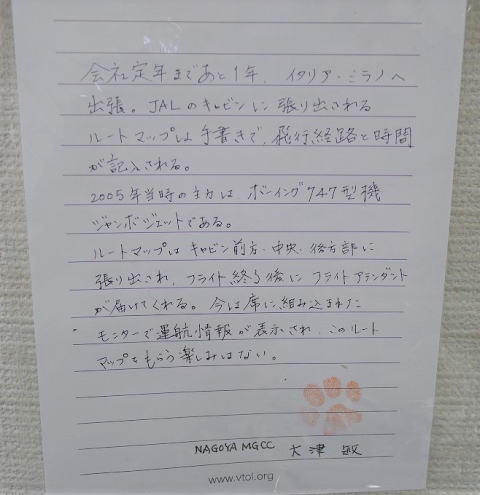 会社定年まであと1年、イタリア・ミラノへ
出張。JALのキャビンに張り出される
ルートマップは手書きで、飛行経路と時間
が記入される。
2005年当時の主力は、ボーイング747型機
ジャンボジェットである。
ルートマップはキャビン前方、中央、後方部に
張り出され、フライト終了後にフライトアテンダント
が届けてくれる。今は席に組み込まれた
モニターで運航情報が表示され、このルート
マップをもらう楽しみはない。
NAGOYA MGCC 大津 敏
www.vtol.org